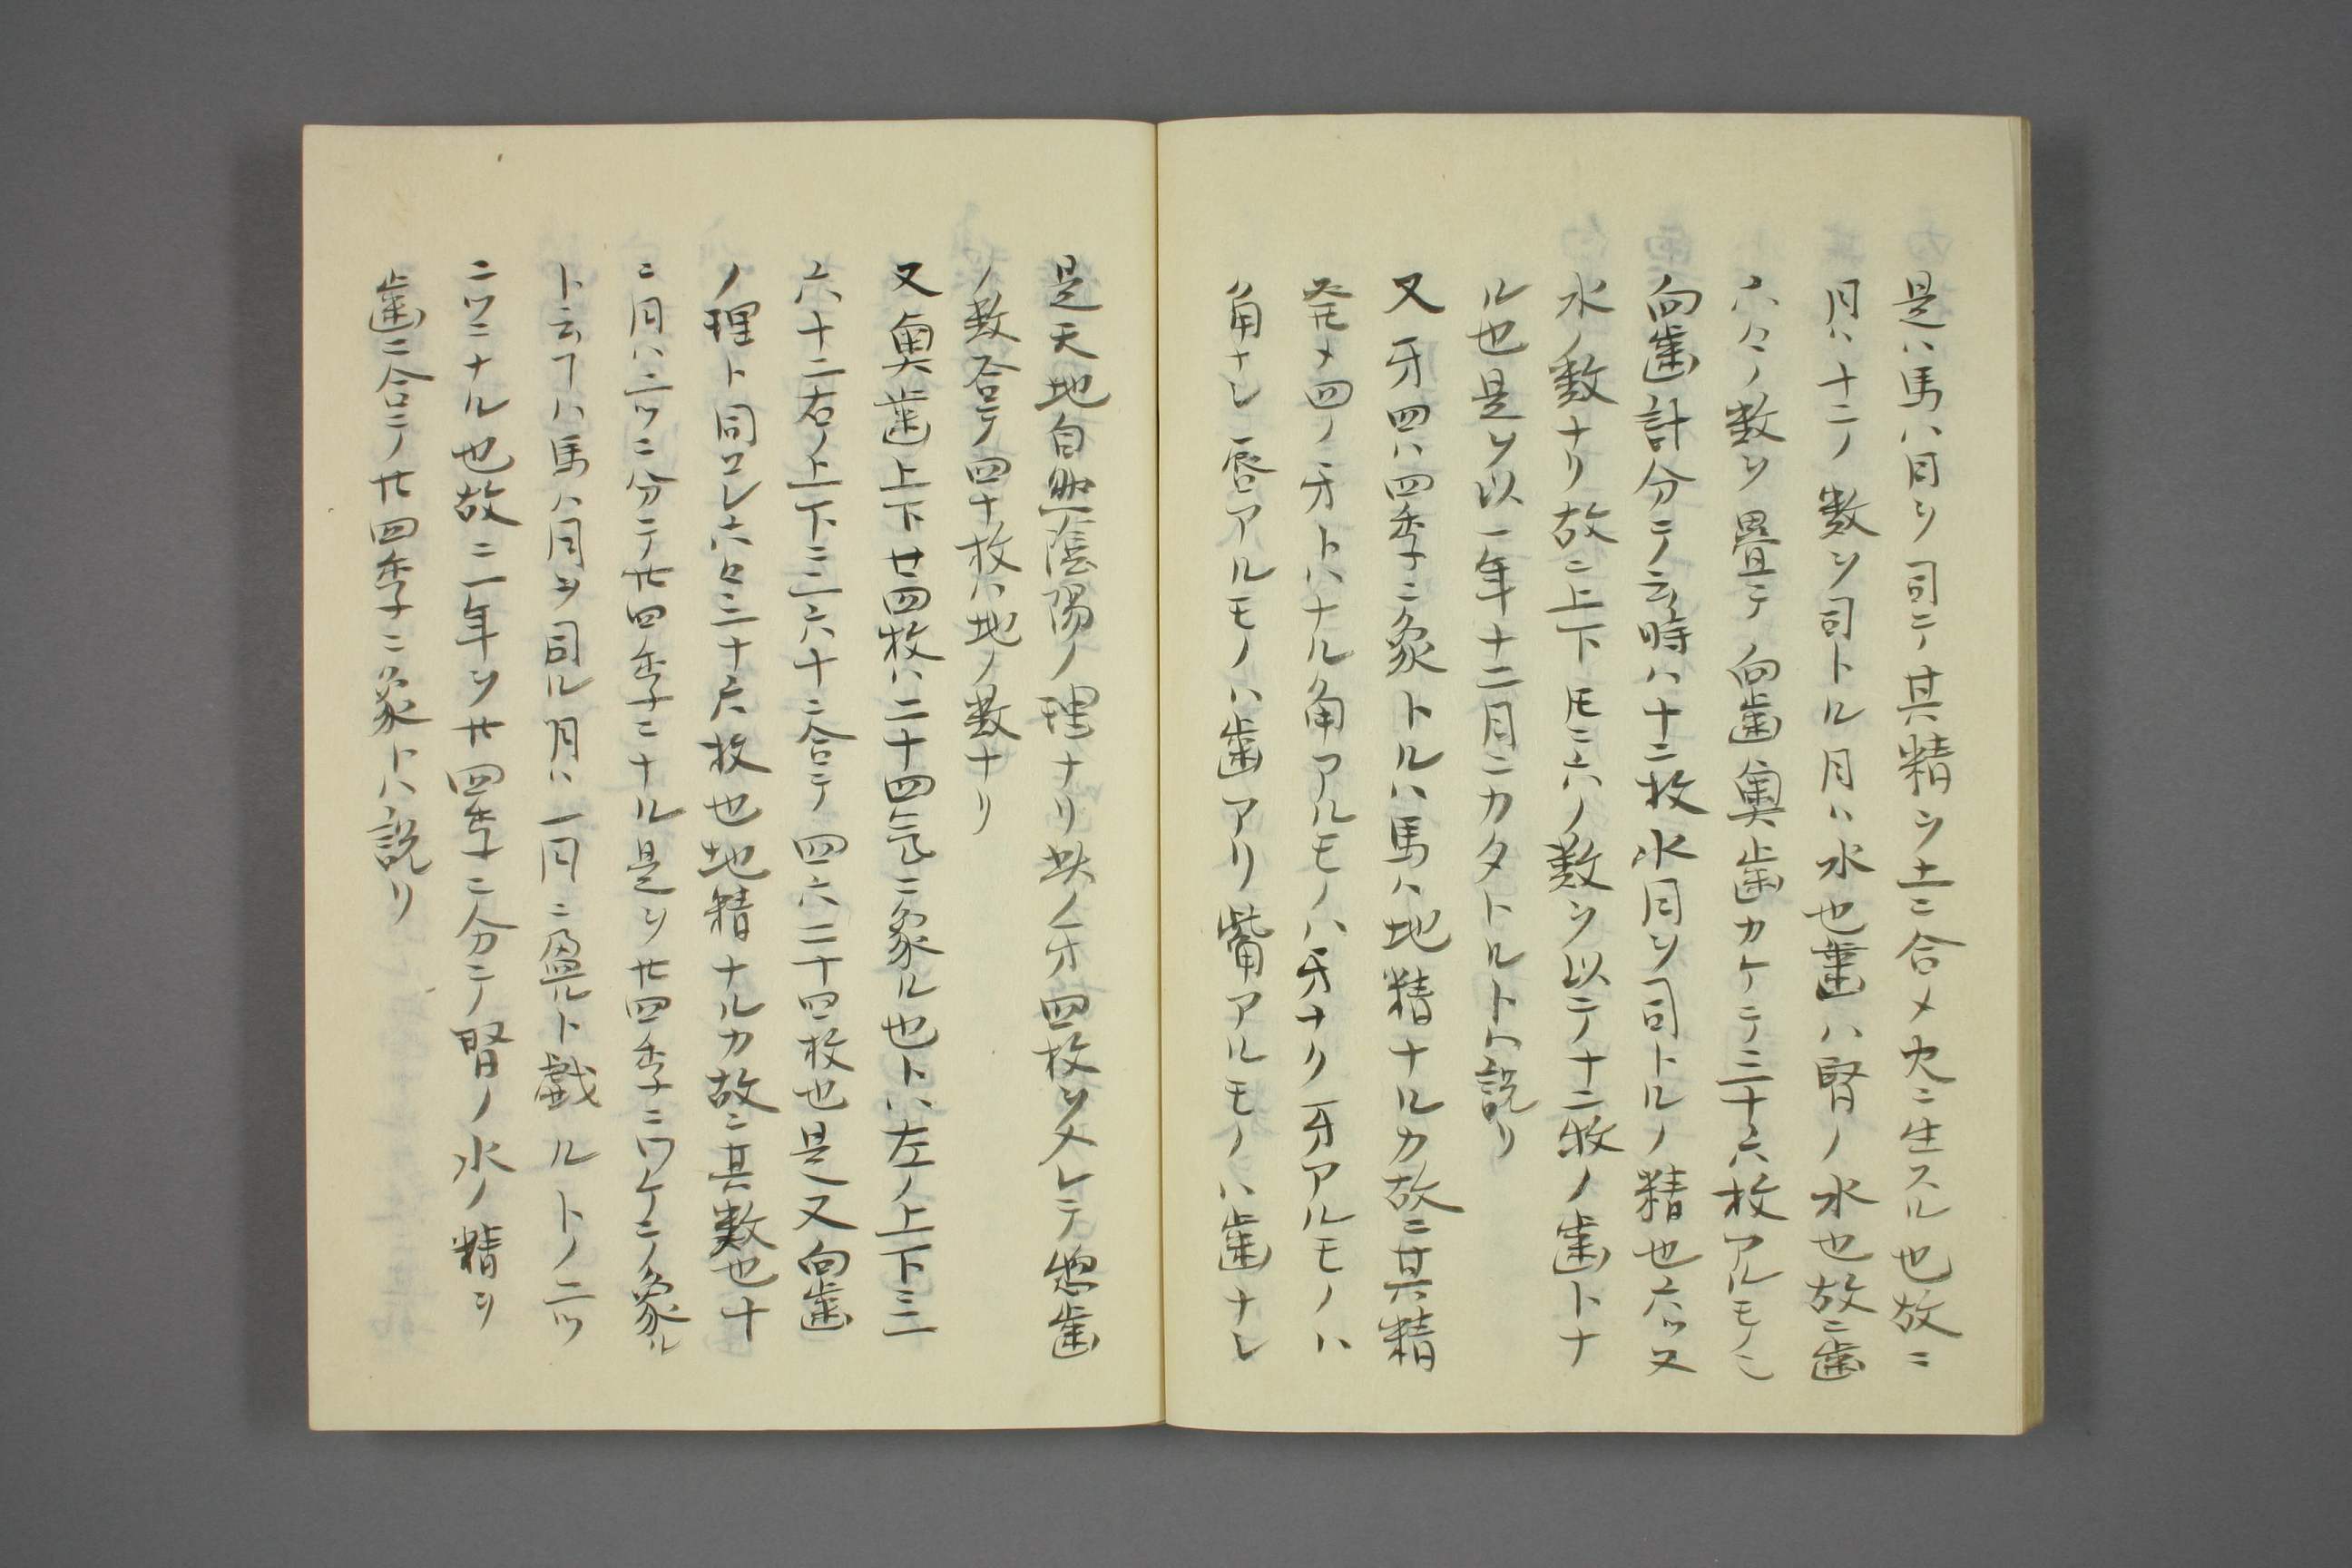 是ハ馬ハ月ヲ司テ其精ヲ土ニ合メ火ニ生スル也故ニ
月ハ十二ノ数ヲ司トル月ハ水也歯ハ腎ノ水也故ニ歯
六々ノ数ヲ畳テ向歯奥歯カケテ三十六枚アルモノ也
向歯計分テ云時ハ十二枚水月ヲ司トルノ精也六ッ又
水ノ数ナリ故ニ上下𪜈ニ六ノ数ヲ以テ十二枚ノ歯トナ
ル也是ヲ以一年十二月ニカタトルトハ説リ
又牙四ハ四季ニ象トルハ馬ハ地精ナルカ故ニ其精
発メ四ノ牙トハナル角アルモノハ牙ナク牙アルモノハ
角ナシ唇アルモノハ歯アリ觜アルモノハ歯ナシ
是天地自然陰陽ノ理ナリ此ノ牙四枚ヲ入レテ惣歯
ノ数合テ四十枚ハ地ノ数ナリ
又奥歯上下廿四枚ハ二十四気ニ象ル也トハ左ノ上下ニ
六十二右ノ上下ニ二六十二合テ四六二十四枚也是又向歯
ノ理ト同コレ六々三十六枚也地精ナルカ故ニ其数也十
二月ハ二ツニ分テ廿四季ニナル是ヲ廿四季ニワケテ象ル
ト云フハ馬ハ月ヲ司ル月ハ一月ニ盈ルト戯ルトノ二ツ
ニツニナル也故ニ一年ヲ廿四季ニ分テ腎ノ水ノ精ヲ
歯ニ合テ廿四季ニ象トハ説リ